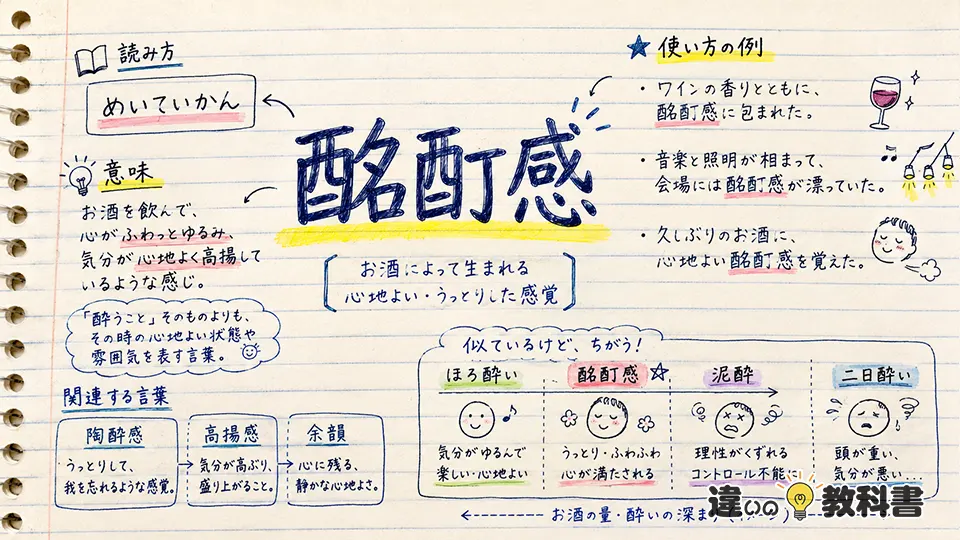 読み方
めいていかん
意味
お酒を飲んで、
心がふわっとゆるみ、
気分が心地よく高揚して
いるような感じ。
「酔うこと」そのものよりも、
その時の心地よい状態や
雰囲気を表す言葉。
酩酊感
お酒によって生まれる
心地よい・うっとりした感覚
使い方の例
・ワインの香りとともに、
酩酊感に包まれた。
・音楽と照明が相まって、
会場には酩酊感が漂っていた。
・久しぶりのお酒に、
心地よい酩酊感を覚えた。
関連する言葉
陶酔感
うっとりして、
我を忘れるような感覚。
高揚感
気分が高ぶり、
盛り上がること。
余韻
心に残る、
静かな心地よさ。
似ているけど、ちがう!
ほろ酔い
気分がゆるんで
楽しい・心地よい
酩酊感
うっとり・ふわふわ
心が満たされる
泥酔
理性がくずれる
コントロール不能に
二日酔い
頭が重い、
気分が悪い...
お酒の量・酔いの深ま
違いの教科書